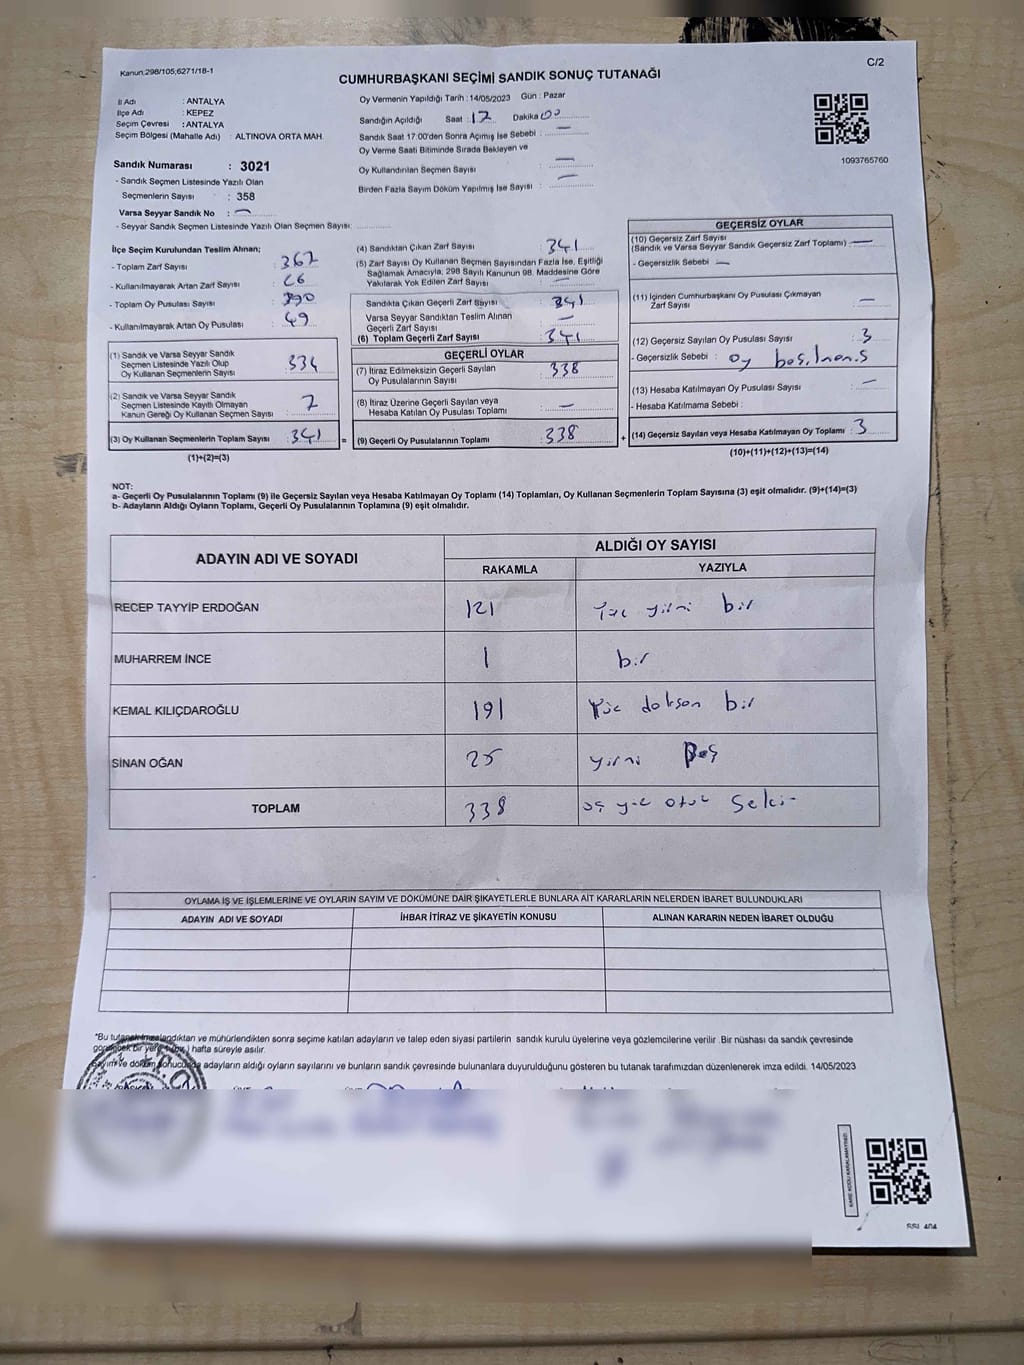 Kanun:298/105;6271/18-1
C/2
CUMHURBAŞKANI SEÇİMİ SANDIK SONUÇ TUTANAĞI
İl Adı : ANTALYA
İlçe Adı : KEPEZ
Seçim Çevresi : ANTALYA
Seçim Bölgesi (Mahalle Adı) : ALTINOVA ORTA MAH.
Sandık Numarası : 3021
- Sandık Seçmen Listesinde Yazılı Olan
Seçmenlerin Sayısı : 358
Varsa Seyyar Sandık No : —
- Seyyar Sandık Seçmen Listesinde Yazılı Olan Seçmen Sayısı:
Oy Vermenin Yapıldığı Tarih : 14/05/2023 Gün : Pazar
Sandığın Açıldığı Saat : 17 Dakika 00
Sandık Saat 17:00'den Sonra Açımış İse Sebebi : —
Oy Verme Saati Bitiminde Sırada Bekleyen ve
Oy Kullandırılan Seçmen Sayısı : —
Birden Fazla Sayım Döküm Yapılmış İse Sayısı : —
1093765760
İlçe Seçim Kurulundan Teslim Alınan;
- Toplam Zarf Sayısı : 367
- Kullanılmayarak Artan Zarf Sayısı : 26
- Toplam Oy Pusulası Sayısı : 390
- Kullanılmayarak Artan Oy Pusulası : 49
(1) Sandık ve Varsa Seyyar Sandık
Seçmen Listesinde Yazılı Olup
Oy Kullanan Seçmenlerin Sayısı : 334
(2) Sandık ve Varsa Seyyar Sandık
Seçmen Listesinde Kayıtlı Olmayan
Kanun Gereği Oy Kullanan Seçmen Sayısı : 7
(3) Oy Kullanan Seçmenlerin Toplam Sayısı : 341 =
(1)+(2)=(3)
(4) Sandıktan Çıkan Zarf Sayısı : 341
(5) Zarf Sayısı Oy Kullanan Seçmen Sayısından Fazla İse, Eşitliği
Sağlamak Amacıyla, 298 Sayılı Kanunun 98. Maddesine Göre
Yakılarak Yok Edilen Zarf Sayısı : —
Sandıkta Çıkan Geçerli Zarf Sayısı : 341
Varsa Seyyar Sandıktan Teslim Alınan
Geçerli Zarf Sayısı : —
(6) Toplam Geçerli Zarf Sayısı : 341
GEÇERLİ OYLAR
(7) İtiraz Edilmeksizin Geçerli Sayılan
Oy Pusulalarının Sayısı : 338
(8) İtiraz Üzerine Geçerli Sayılan veya
Hesaba Katılan Oy Pusulası Toplamı : —
(9) Geçerli Oy Pusulalarının Toplamı : 338 +
GEÇERSİZ OYLAR
(10) Geçersiz Zarf Sayısı
(Sandık ve Varsa Seyyar Sandık Geçersiz Zarf Toplamı) : —
- Geçersizlik Sebebi : —
(11) İçinden Cumhurbaşkanı Oy Pusulası Çıkmayan
Zarf Sayısı : —
(12) Geçersiz Sayılan Oy Pusulası Sayısı : 3
- Geçersizlik Sebebi : oy
(13) Hesaba Katılmayan Oy Pusulası Sayısı : —
- Hesaba Katılmama Sebebi :
(14) Geçersiz Sayılan veya Hesaba Katılmayan Oy Toplamı : 3
(10)+(11)+(12)+(13)=(14)
NOT:
a- Geçerli Oy Pusulalarının Toplamı (9) ile Geçersiz Sayılan veya Hesaba Katılmayan Oy Toplamı (14) Toplamları, Oy Kullanan Seçmenlerin Toplam Sayısına (3) eşit olmalıdır. (9)+(14)=(3)
b- Adayların Aldığı Oyların Toplamı, Geçerli Oy Pusulalarının Toplamına (9) eşit olmalıdır.
ADAYIN ADI VE SOYADI
ALDIĞI OY SAYISI
RAKAMLA YAZIYLA
RECEP TAYYİP ERDOĞAN 121 Yüz yirmi bir
MUHARREM İNCE 1 bir
KEMAL KILIÇDAROĞLU 191 Yüz doksan bir
SİNAN OĞAN 25 yirmi Beş
TOPLAM 338 üç yüz otuz sekiz
OYLAMA İŞ VE İŞLEMLERİNE VE OYLARIN SAYIM VE DÖKÜMÜNE DAİR ŞİKAYETLERLE BUNLARA AİT KARARLARIN NELERDEN İBARET BULUNDUKLARI
ADAYIN ADI VE SOYADI İHBAR İTİRAZ VE ŞİKAYETİN KONUSU ALINAN KARARIN NEDEN İBARET OLDUĞU
*Bu tutanak imzalandıktan ve mühürlendikten sonra seçime katılan adayların ve talep eden siyasi partilerin sandık kurulu üyelerine veya gözlemcilerine verilir .Bir nüshası da sandık çevresinde
hafta süreyle asılır.
Sayım ve döküm sonucunda adayların aldığı oyların sayılarını ve bunların sandık çevresinde bulunanlara duyurulduğunu gösteren bu tutanak tarafımızdan düzenlenerek imza edildi. 14/05/2023